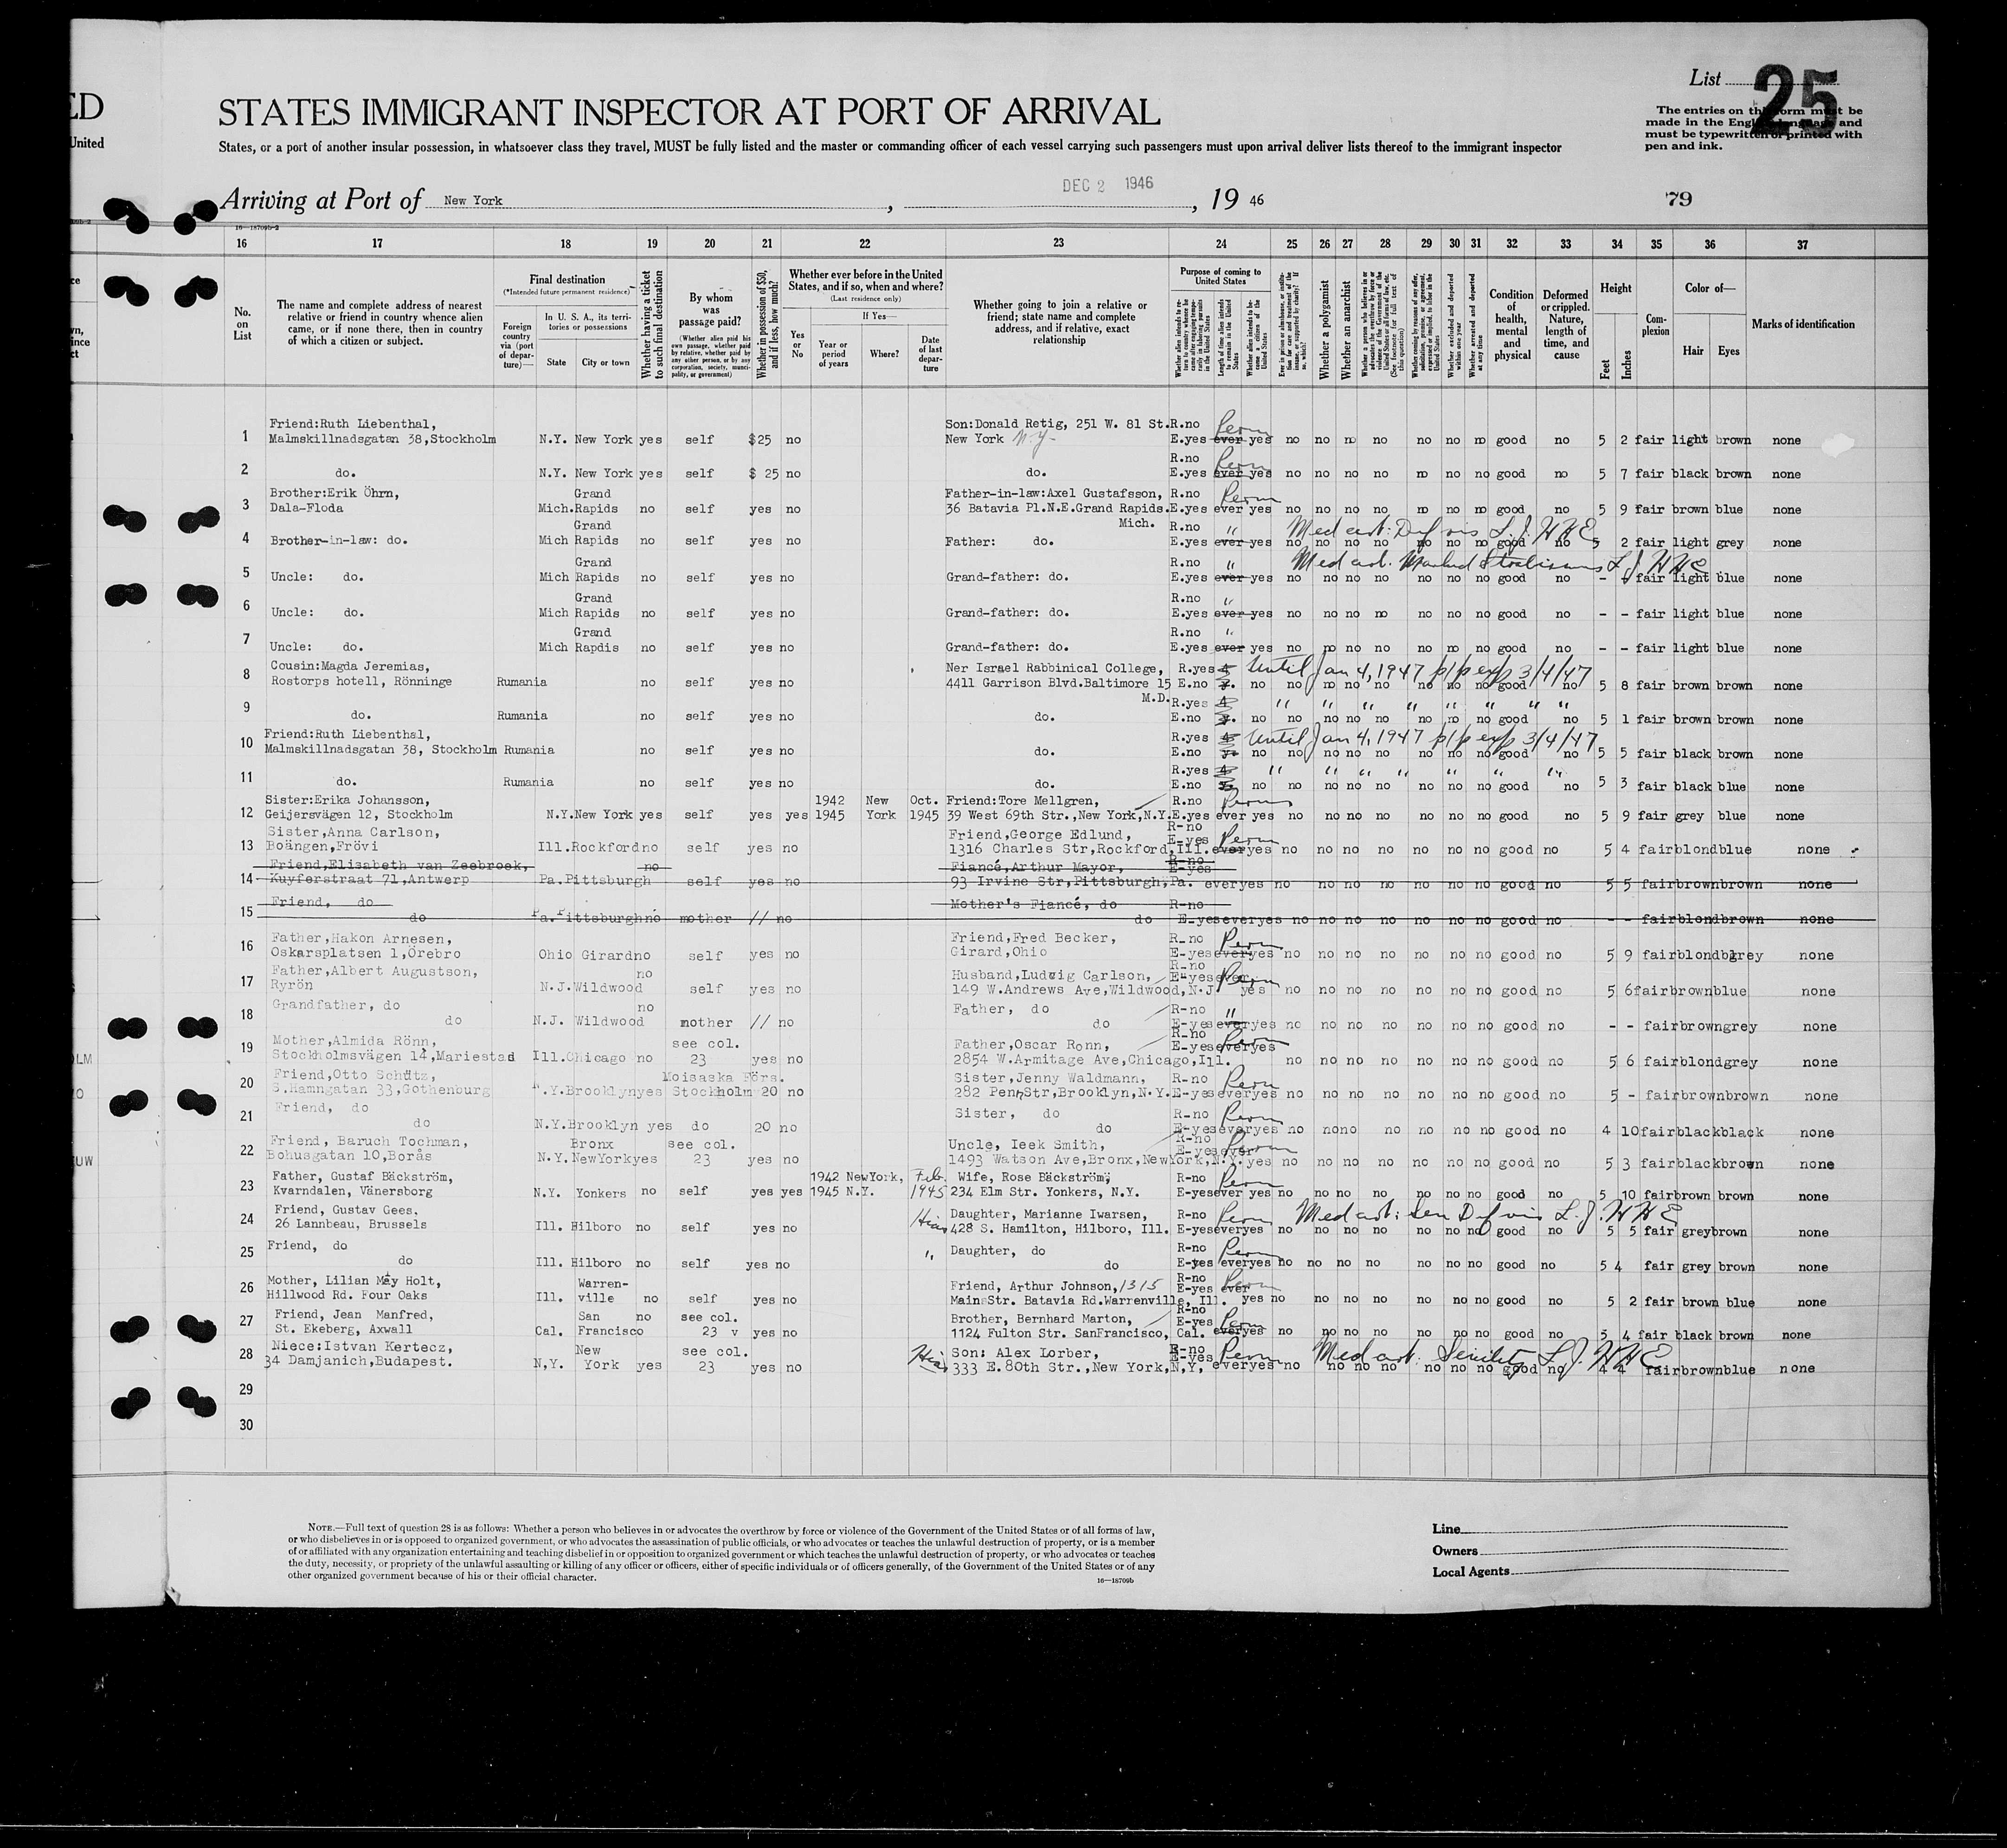 List 25
ED
STATES IMMIGRANT INSPECTOR AT PORT OF ARRIVAL
The entries on this form must be
made in the English language and
must be typewritten or printed with
pen and ink.
United
States, or a port of another insular possession, in whatsoever class they travel, MUST be fully listed and the master or commanding officer of each vessel carrying such passengers must upon arrival deliver lists thereof to the immigrant inspector
Arriving at Port of New York, DEC 2 1946, 19 46
79
16—18709b-2
16 17 18 19 20 21 22 23 24 25 26 27 28 29 30 31 32 33 34 35 36 37
No. on List
The name and complete address of nearest
relative or friend in country whence alien
came, or if none there, then in country
of which a citizen or subject.
Final destination
(*Intended future permanent residence)
Foreign country via (port of departure)—
In U. S. A., its territories or possessions
State
City or town
Whether having a ticket to such final destination
By whom was passage paid?
(Whether alien paid his own passage, whether paid by relative, whether paid by any other person, or by any corporation, society, municipality, or government)
Whether in possession of $50, and if less, how much?
Whether ever before in the United States, and if so, when and where?
(Last residence only)
Yes or No
If Yes—
Year or period of years
Where?
Date of last departure
Whether going to join a relative or
friend; state name and complete
address, and if relative, exact
relationship
Purpose of coming to United States
Whether alien intends to return to country whence he came after engaging temporarily in laboring pursuits in the United States
Length of time alien intends to remain in the United States
Whether alien intends to become a citizen of the United States
Ever in prison or almshouse, or institution for care and treatment of the insane, or supported by charity? If so, which?
Whether a polygamist
Whether an anarchist
Whether a person who believes in or advocates the overthrow by force or violence of the Government of the United States or all forms of law, etc. (See footnote for full text of this question)
Whether coming by reason of any offer, solicitation, promise, or agreement, expressed or implied, to labor in the United States
Whether excluded and deported within one year
Whether arrested and deported at any time
Condition of health, mental and physical
Deformed or crippled. Nature, length of time, and cause
Height
Feet
Inches
Complexion
Color of—
Hair
Eyes
Marks of identification
Friend:Ruth Liebenthal, Son:Donald Retig, 251 W. 81 St. R.no Perm
1 Malmskillnadsgatan 38,Stockholm N.Y. New York yes self $25 no New York N.Y. E.yes ever yes no no no no no no no good no 5 2 fair light brown none
R.no Perm
2 do. N.Y. New York yes self $ 25 no do. E.yes ever yes no no no no no no no good no 5 7 fair black brown none
Brother:Erik Öhrn, Grand Father-in-law:Axel Gustafsson, R.no Perm
3 Dala-Floda Mich.Rapids no self yes no 36 Batavia Pl.N.E.Grand Rapids. E.yes ever yes no no no no no no no good no 5 9 fair brown blue none
Grand Mich. R.no " Med cert: Def vis L.J. HHE
4 Brother-in-law: do. Mich Rapids no self yes no Father: do. E.yes ever yes no no no no no no no good no 5 2 fair light grey none
Grand R.no " Med cert. Marked Strabismus L J HHE
5 Uncle: do. Mich Rapids no self yes no Grand-father: do. E.yes ever yes no no no no no no no good no - - fair light blue none
Grand R.no "
6 Uncle: do. Mich Rapids no self yes no Grand-father: do. E.yes ever yes no no no no no no no good no - - fair light blue none
Grand R.no "
7 Uncle: do. Mich Rapdis no self yes no Grand-father: do. E.yes ever yes no no no no no no no good no - - fair light blue none
Cousin:Magda Jeremias, Ner Israel Rabbinical College, R.yes Until Jan 4, 1947 p/p exp 3/4/47
8 Rostorps hotell, Rönninge Rumania no self yes no 4411 Garrison Blvd.Baltimore 15 E.no y. no no no no no no no no good no 5 8 fair brown brown none
M.D. R.yes " " " " " " " "
9 do. Rumania no self yes no do. E.no y. no no no no no no no no good no 5 1 fair brown brown none
Friend:Ruth Liebenthal, R.yes Until Jan 4, 1947 p/p exp 3/4/47
10 Malmskillnadsgatan 38, Stockholm Rumania no self yes no do. E.no no no no no no no no no good no 5 5 fair black brown none
R.yes " " " " " " "
11 do. Rumania no self yes no do. E.no no no no no no no no no good no 5 3 fair black blue none
Sister:Erika Johansson, 1942 New Oct. Friend:Tore Mellgren, R.no Perm
12 Geijersvägen 12, Stockholm N.Y.New York yes self yes yes 1945 York 1945 39 West 69th Str.,New York,N.Y. E.yes ever yes no no no no no no no good no 5 9 fair grey blue none
Sister,Anna Carlson, Friend,George Edlund, R-no E-yes Perm
13 Boängen,Frövi Ill.Rockford no self yes no 1316 Charles Str,Rockford,Ill. everyes no no no no no no no good no 5 4 fair blond blue none
Friend,Elisabeth van Zeebroek, no Fiancé,Arthur Mayor, R-no E-yes
14 Kuyferstraat 71,Antwerp Pa.Pittsburgh self yes no 93 Irvine Str,Pittsburgh,Pa. everyes no no no no no no no good no 5 5 fair brown brown none
Friend, do Mother's Fiancé, do R-no
15 do Pa.Pittsburgh no mother // no do E-yes everyes no no no no no no no good no - - fair blond brown none
Father,Hakon Arnesen, Friend,Fred Becker, R-no Perm
16 Oskarsplatsen 1,Örebro Ohio Girard no self yes no Girard,Ohio E-yes everyes no no no no no no no good no 5 9 fair blond grey none
Father,Albert Augustson, no Husband,Ludwig Carlson, R-no E-yes ever Perm
17 Ryrön N.J.Wildwood self yes no 149 W.Andrews Ave,Wildwood,N.J. yes no no no no no no no good no 5 6 fair brown blue none
Grandfather, do no Father, do R-no "
18 do N.J. Wildwood mother // no do E-yes everyes no no no no no no no good no - - fair brown grey none
Mother,Almida Rönn, see col. Father,Oscar Ronn, R-no E-yes everyes Perm
19 Stockholmsvägen 14,Mariestad Ill.Chicago no 23 yes no 2854 W.Armitage Ave,Chicago,Ill. no no no no no no no good no 5 6 fair blond grey none
Friend,Otto Schütz, Moisaska Förs. Sister,Jenny Waldmann, R-no Perm
20 S.Hamngatan 33,Gothenburg N.Y.Brooklyn yes Stockholm 20 no 282 Penn Str,Brooklyn,N.Y. E-yes everyes no no no no no no no good no 5 - fair brown brown none
Friend, do Sister, do R-no Perm
21 do N.Y.Brooklyn yes do 20 no do E-yes everyes no no no no no no no good no 4 10 fair black black none
Friend, Baruch Tochman, Bronx see col. Uncle, Ieek Smith, R-no E-yes ever Perm
22 Bohusgatan 10,Borås N.Y.NewYork yes 23 yes no 1493 Watson Ave,Bronx,NewYork,N.Y. yes no no no no no no no good no 5 3 fair black brown none
Father, Gustaf Bäckström, 1942 NewYork, Feb. Wife, Rose Bäckström, R-no Perm
23 Kvarndalen, Vänersborg N.Y. Yonkers no self yes yes 1945 N.Y. 1945 234 Elm Str. Yonkers, N.Y. E-yes ever yes no no no no no no no good no 5 10 fair brown brown none
Friend, Gustav Gees, Hias Daughter, Marianne Iwarsen, R-no Perm Med cert: Sen Def vis L.J. HHE
24 26 Lannbeau, Brussels Ill. Hilboro no self yes no 428 S. Hamilton, Hilboro, Ill. E-yes everyes no no no no no no no good no 5 5 fair grey brown none
Friend, do " Daughter, do R-no Perm
25 do Ill. Hilboro no self yes no do E-yes everyes no no no no no no no good no 5 4 fair grey brown none
Mother, Lilian May Holt, Warren- Friend, Arthur Johnson, 1315 R-no E-yes ever Perm
26 Hillwood Rd. Four Oaks Ill. ville no self yes no Main Str. Batavia Rd.Warrenville, Ill. yes no no no no no no no good no 5 2 fair brown blue none
Friend, Jean Manfred, San no see col. Brother, Bernhard Marton, R-no E-yes Perm
27 St. Ekeberg, Axwall Cal. Francisco 23 v yes no 1124 Fulton Str. SanFrancisco, Cal. everyes no no no no no no no good no 5 4 fair black brown none
Niece:Istvan Kertecz, New see col. Hias Son: Alex Lorber, R-no E-yes Perm Med cert: Senility L.J. HHE
28 34 Damjanich,Budapest. N,Y. York yes 23 yes no 333 E.80th Str.,New York,N,Y, everyes no no no no no no no good no 4 4 fair brown blue none
29
30
NOTE.—Full text of question 28 is as follows: Whether a person who believes in or advocates the overthrow by force or violence of the Government of the United States or of all forms of law,
or who disbelieves in or is opposed to organized government, or who advocates the assassination of public officials, or who advocates or teaches the unlawful destruction of property, or is a member
of or affiliated with any organization entertaining and teaching disbelief in or opposition to organized government or which teaches the unlawful destruction of property, or who advocates or teaches
the duty, necessity, or propriety of the unlawful assaulting or killing of any officer or officers, either of specific individuals or of officers generally, of the Government of the United States or of any
other organized government because of his or their official character.
16—18709b
Line
Owners
Local Agents